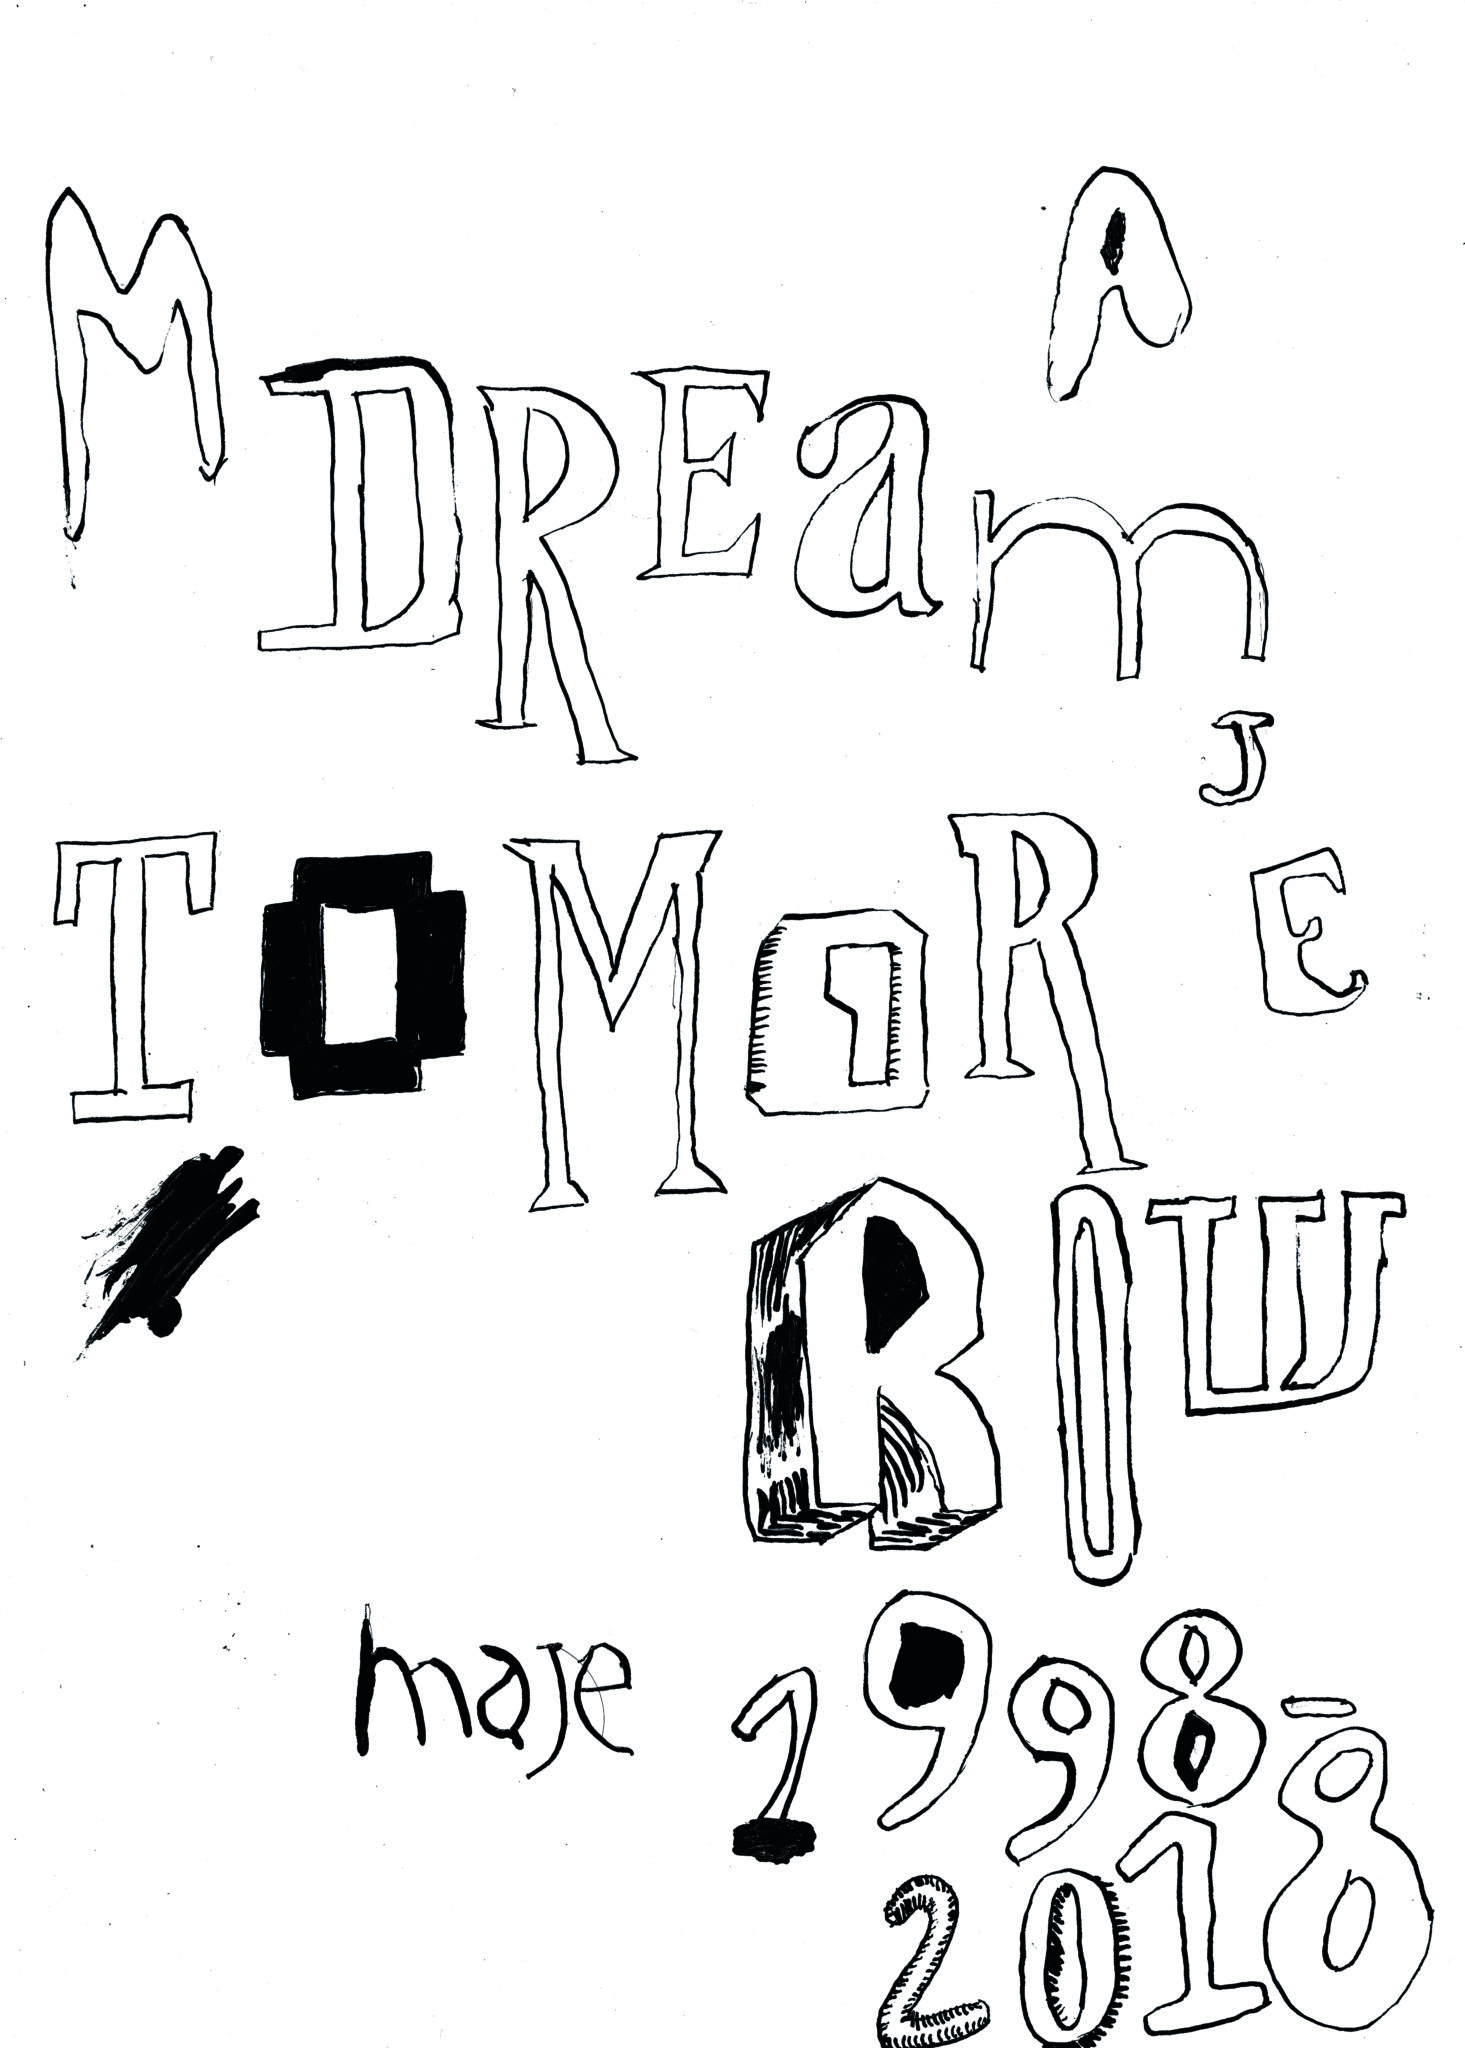 M A
DREam
J
TOMOR E
ROW
maje 1998-
2018